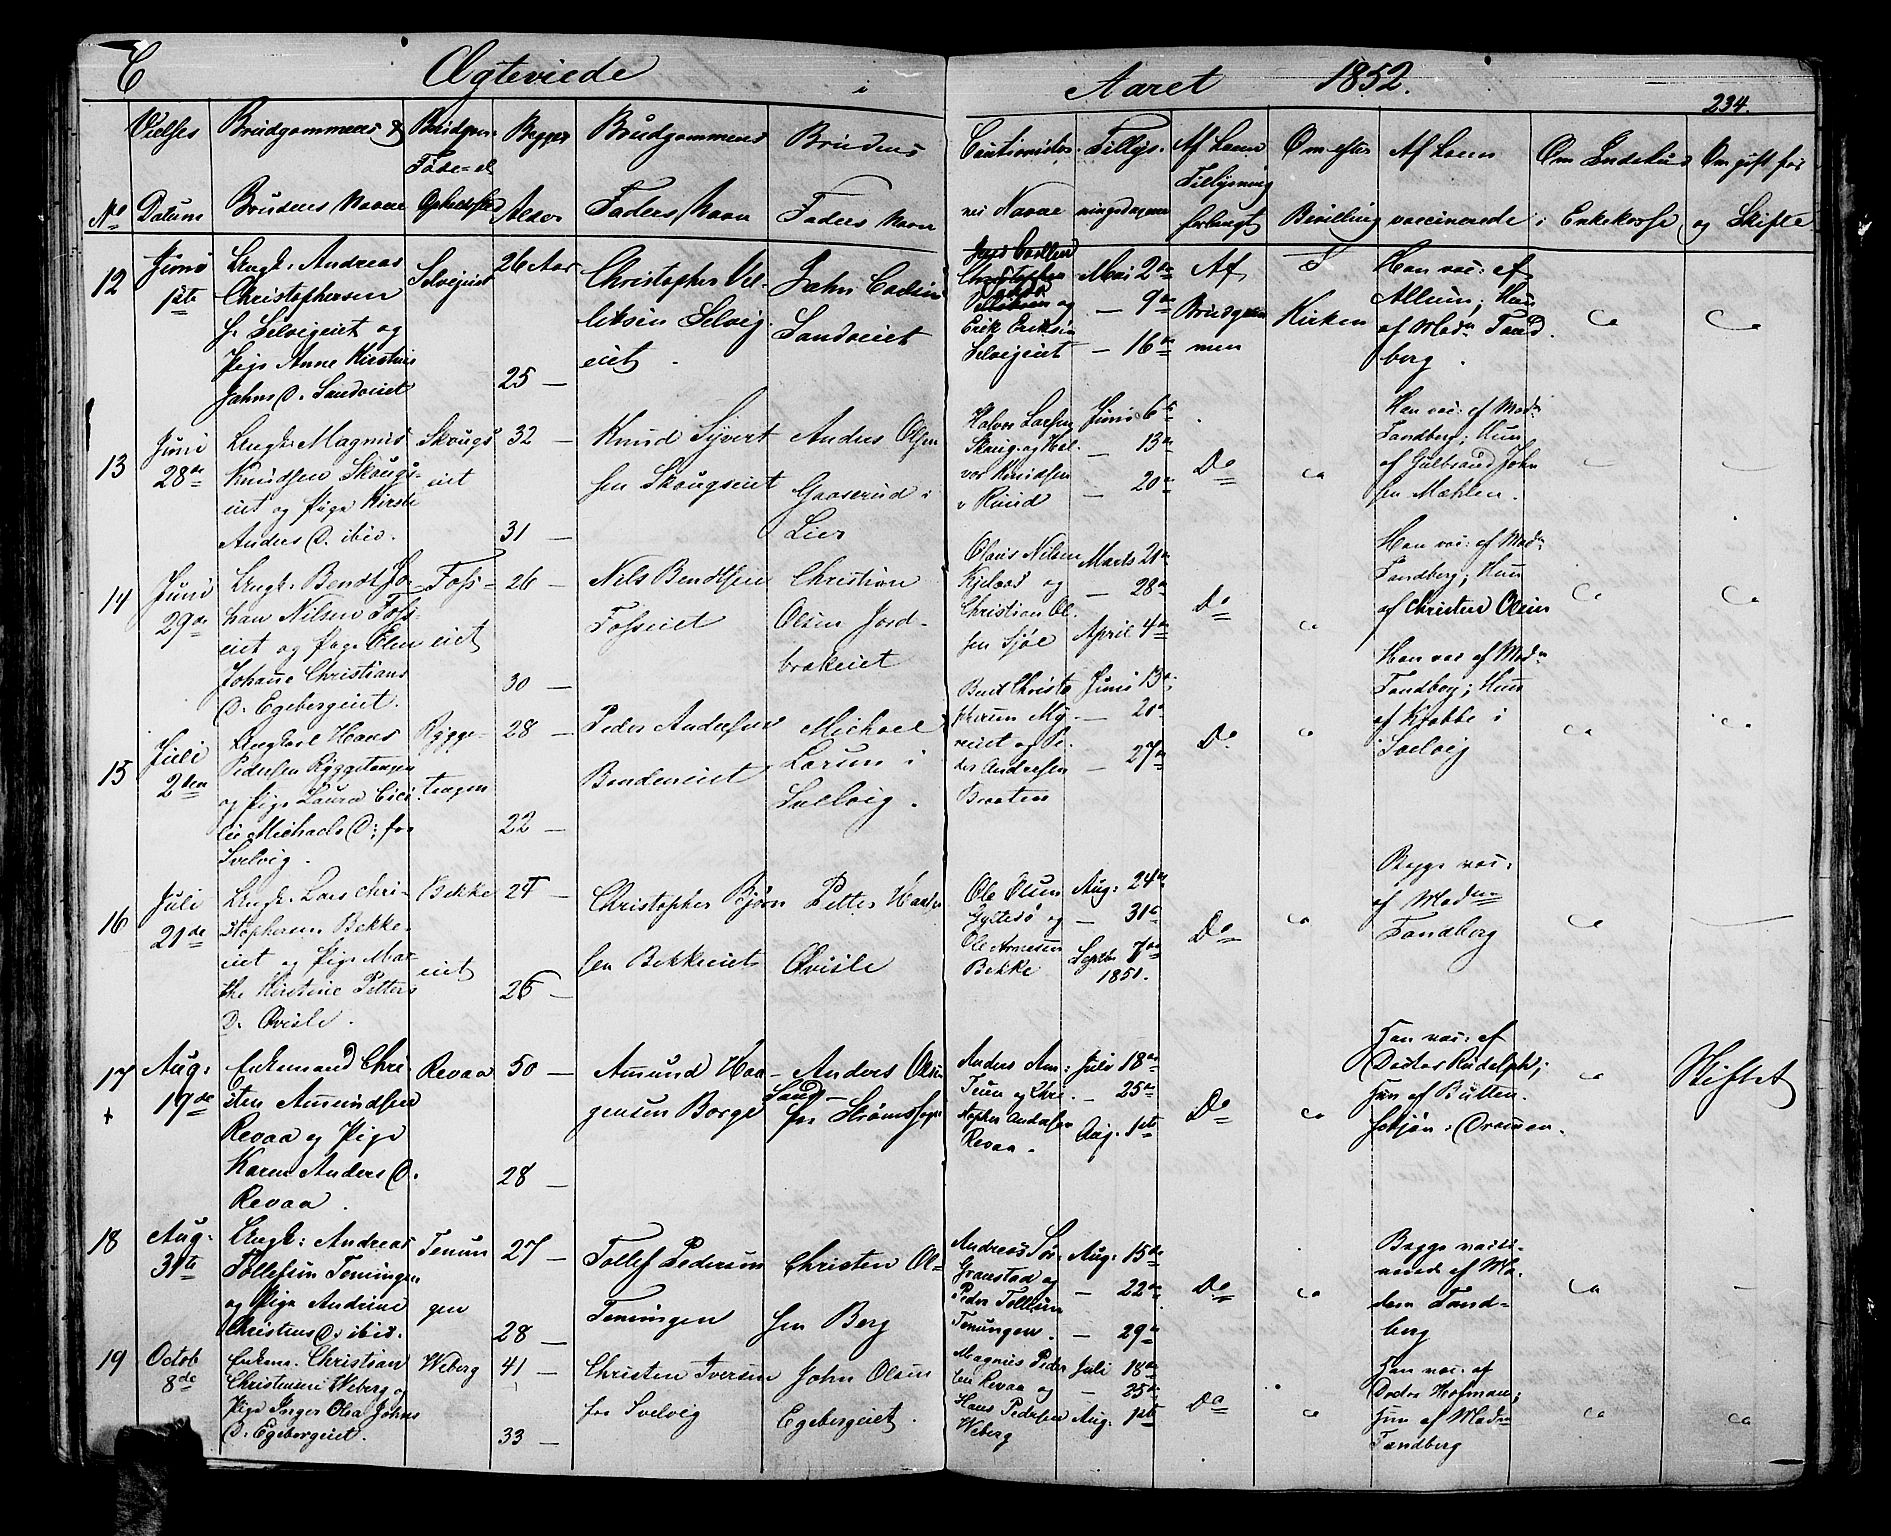 C Ægteviede i Aaret 1852. 234.
No
Vielses Datum
Brudgommens & Brudens Navne
Brudgom: Føde- el Opholdssted
Begges Alder
Brudgommens Faders Navn
Brudens Faders Navn
Cautionister- nes Navne
Tillys- ningsdagene
Af hvem Tillysning forlangt
Om efter Bevilling
Af hvem vaccinerede
Om Indehus i Enkekasse
Om gift før og Skifte
12
Juni
1ste
Ungk: Andreas
Christophersen
f. Selvigeiet og
Pige Anne Kirstine
Jahns D. Sandveiet
Selvigeiet
26 Aar
25 —
Christopher
Selvig
eiet.
Jahn
Sandveiet
Erik Eriksen
Selvigeiet
Mai 2den
— 9de
— 16de
Af
Brudgom
men
I
Kirken
Han vac: af
Allum; Hun
af Madm Tand
berg.
Co
Co
13
Juni
28de
Ungk: Magnus
Knudsen Skougs-
eiet og Pige Kirsti
Anders D. ibid.
Skougs
eiet
32 —
31 —
Knud Syvert
sen Skougseiet
Anders Olsen
Gaaserud i
Lier
Halvor Larsen
Skoug og Hal-
vor Knudsen
Juni 6te
— 13de
— 20de
Do
Co
Han vac: af Madm
Tandberg; Hun
af Gulbrand John
sen Mæhlen.
14
Juni
29de
Ungk: Bendt Jo-
han Nilsen Foss-
eiet og Pige Elen
Johane Christians
D. Egebergeiet.
Foss-
eiet
26 —
30 —
Nils Bendtsen
Fosseiet
Christian
Olsen Jord-
brækeiet
Olaus Nilsen
og
Christian Ol-
sen Sjøl
Marts 21de
— 28de
April 4de
Do
Co
Han vac: af Madm
Tandberg; Hun
af Christen Olsen
Co
Co
15
Juli
2den
Ungkarl Hans
Pedersen Ryggetangen
og Pige Laura Cici-
lie Michaels D: fra
Svelvig.
Rygge-
tangen
28 —
22 —
Peder Andersen
Bendeneiet
Michael
Larsen i
Svelvig.
Berit Christo
phersen My-
reeiet og Pe-
der Andersen
Braaten
Juni 13de
— 20de
— 27de
Do
Co
Han vac af Madm
Tandberg; Hun
af Krabbe i
Svelvig
Co
Co
16
Juli
21de
Ungk: Lars Chri-
stophersen Bekke-
eiet og Pige Mar-
the Kirstine Petters
D. Qvisle.
Bekke
eiet
24 —
26 —
Christopher Bjørn
sen Bekkeeiet
Petter Hansen
Qvisle
Ole Olsen
Gyltesø og
Ole Arnesen
Bekke
Aug: 24de
— 31te
Septbr 7de
1851.
Do
Co
Begge vac:
af Madm
Tandberg
Co
17
+
Aug:
17de
Enkemand Chri-
sten Amundsen
Revaa og Pige
Karen Anders D.
Revaa.
Revaa
50 —
28 —
Amund Haa-
gensen Borge
Anders Olsen
Sand
fra Strømssogn
Anders Am:
Teien og Chri-
stopher Andersen
Revaa.
Juli 18de
— 25de
Aug. 1ste
Do
Co
Han vac: af
Doctor Rudolph;
Hun af Butten-
schjøn i Dramen.
Co
Skiftet
18
Aug.
31te
Ungk: Andreas
Tollefsen Temingen
og Pige Andrine
Christens D. ibid.
Temin
gen
27 —
28 —
Tollef Pedersen
Temingen
Christen Ol-
sen Berg
Andreas Sør-
Granstad og
Peder Tollefsen
Temingen.
Aug: 15de
— 22de
— 29de
Do
Co
Begge vacci-
nerede af Ma-
dam Tand-
berg
Co
—
19
Octob
8de
Enkem. Christian
Christensen Weberg og
Pige Inger Olea Johns
D. Egebergeiet.
Weberg
41 —
33 —
Christen Iversen
fra Svelvig
John Olsen
Egebergeiet.
Magnus Peder
sen Revaa og
Hans Pedersen
Weberg
Juli 18de
— 25de
Aug. 1ste
Do
Co
Han vac: af
Doctor Hofman;
Hun af Madm
Tandberg
Co
Co